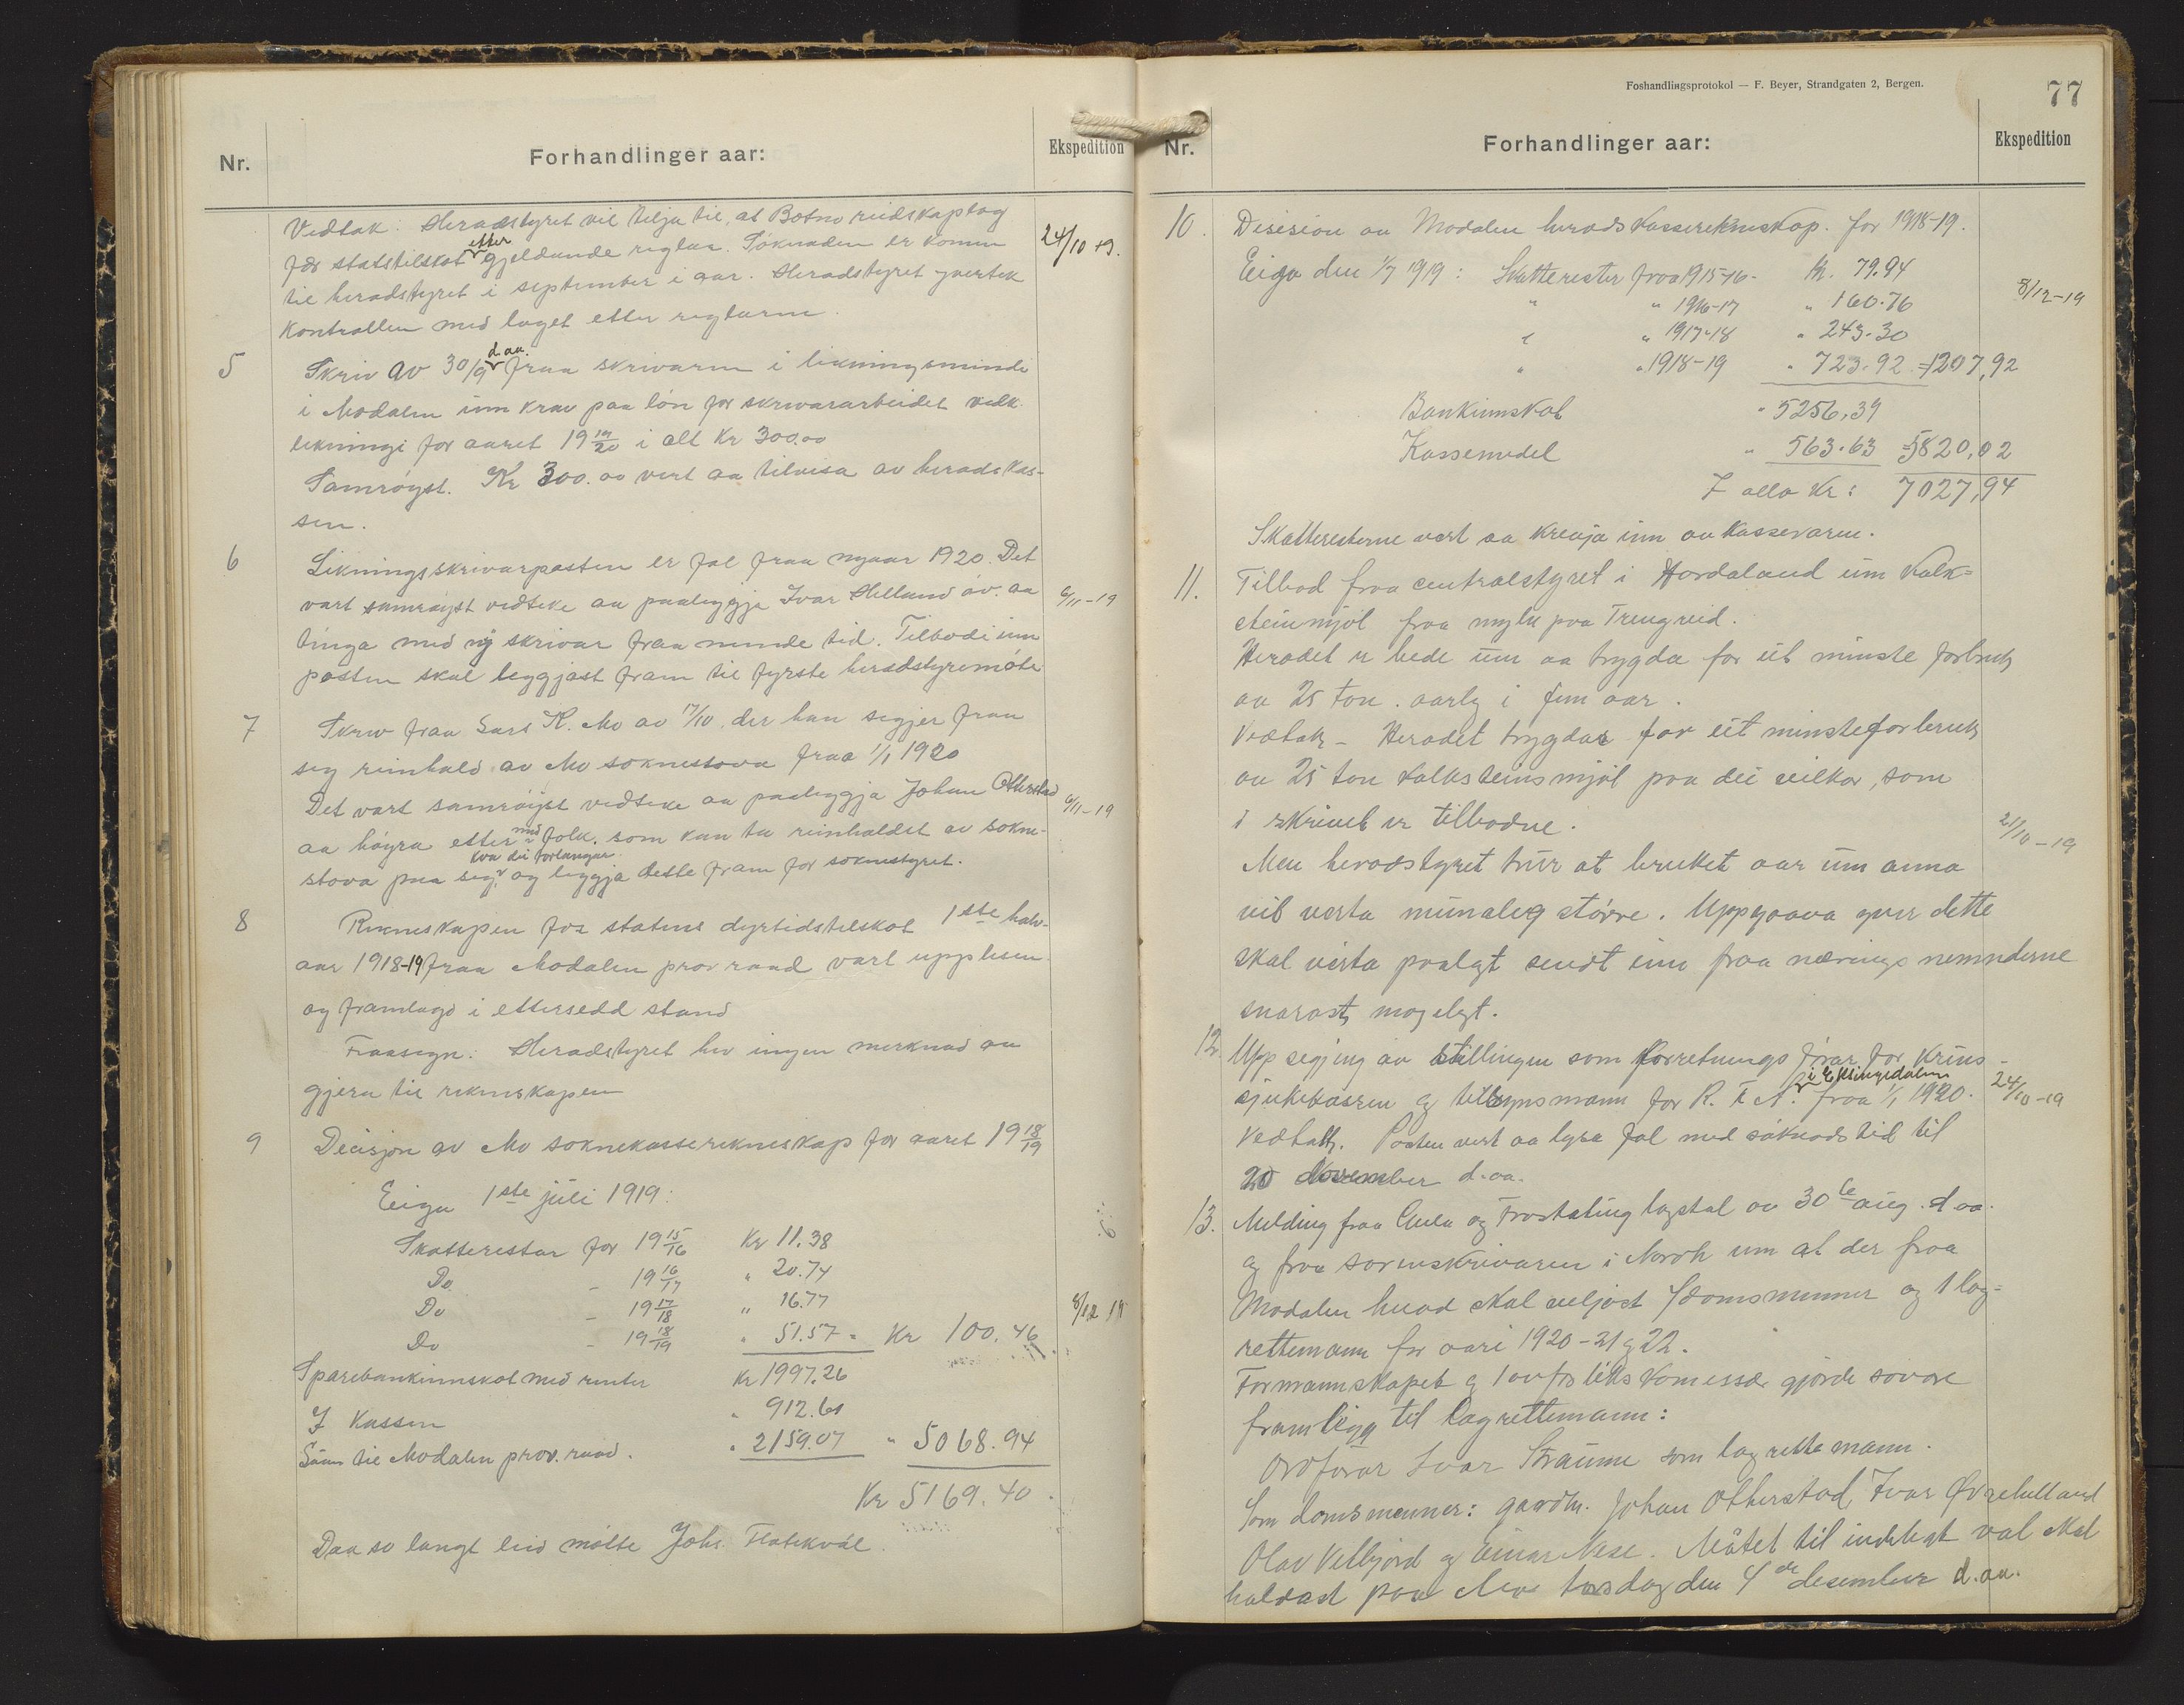 Nr.
Forhandlinger aar:
Ekspedition
Vedtak: Heradstyret vil telja til, at Botnu reidskaplag
fær statstilskot etter gjeldande reglar. Söknaden er komen
til heradstyret i september i aar. Heradstyret yvertek
kontrollen med laget etter reglarne.
24/10 19.
5 Skriv av 30/9 d.aa. fraa skrivaren i likningsnemndi
i Modalen um krav paa lön for skrivararbeidet vedk.
likningi for aaret 19 19/20 i alt Kr 300.00
Samröyst. Kr 300.00 vert aa tilvisa av heradskas-
sen.
6 Likningsskrivarposten er fal fraa nyaar 1920. Det
vart samröyst vedteke aa paaleggja Ivar Helland av. aa
tinga med ny skrivar fraa nemnde tid. Tilbodi um
posten skal leggjast fram til fyrste heradstyremöte
6/11-19
7 Skriv fraa Lars K. Mo av 17/10. der han segjer fraa
seg reinhald av Mo soknestova fraa 1/1 1920
Det vart samröyst vedteke aa paaleggja Johan Otterstad
aa höyra etter med folk, som kan ta reinhaldet av sokne-
stova paa seg, kva dei forlangar og leggja dette fram for soknestyret.
6/11-19
8 Rekneskapen for statens dyrtidstilskot 1ste halv-
aar 1918-19 fraa Modalen prov.raad vart upplesen
og framlagd i ettersedd stand
Fraasegn: Heradstyret hev ingen merknad aa
gjera til rekneskapen
9 Decisjon av Mo soknekasserekneskap for aaret 19 18/19
Eiga 1ste juli 1919:
Skatterestar for 19 15/16 Kr 11.38
Do - 19 16/17 " 20.74
Do - 19 17/18 " 16.77
Do - 19 18/19 " 51.57 = Kr 100.46
8/12 19
Sparebankinnskot med renter Kr 1997.26
I Kassen " 912.61
Laan til Modalen prov.raad. " 2159.07 " 5068.94
Kr 5169.40.
Daa so langt leid mötte Johs. Flatekvål.
Foshandlingsprotokol — F. Beyer, Strandgaten 2, Bergen.
77
Nr.
Forhandlinger aar:
Ekspedition
10. Desision av Modalen heradskasserekneskap. for 1918-19.
Eiga den 1/7 1919: Skatterester fraa 1915-16- Kr. 79.94
" " 1916-17 " 160.76
" " 1917-18 " 243.30
" " 1918-19 " 723.92 = 1207,92
8/12-19
Bankinnskot " 5256,39
Kassemedel " 563.63 5820,02
I alla Kr: 7027,94
Skatteresterne vert aa krevja inn av kassevaren.
11. Tilbod fraa centralstyret i Hordaland um kalk-
steinmjöl fraa mylu paa Trengreid.
Heradet er bede um aa trygda for eit minste forbruk
av 25 ton. aarleg i fem aar.
Vedtak - Heradet trygdar for eit minsteforbruk
av 25 ton kalksteinsmjöl paa dei vilkor, som
i skrivet er tilbodne.
Men heradstyret trur at bruket aar um anna
vil verta munaleg större. Uppgaava yver dette
skal verta paalagt sendt inn fraa næringsnemnderne
snarast mogelegt.
21/10-19
12. Uppsegjing av stillingen som forretningsförar for krins-
sjukekassen og tillsynsmann for R. F. A. i Eksingedalen fraa 1/1 1920.
Vedtak. Posten vert aa lysa fal med söknadstid til
20 November d.aa.
24/10-19
13. Melding fraa Gula og Frostating lagstol av 30te aug. d aa.
og fraa sorenskrivaren i Nordh um at der fraa
Modalen herad skal veljast 4 domsmenner og 1 lag-
rettemann for aari 1920-21 og 22.
Formannskapet og 1 av friliks komessær gjorde sovore
framlegg til lagrettemann:
Ordförar Ivar Straume som lagrettemann.
Som domsmenner: gardbr. Johan Otterstad, Ivar Övrehelland
Olav Vetlejord og Einar Nese. Mötet til endelegt val skal
haldast paa Mo torsdag den 4de desember d.aa.